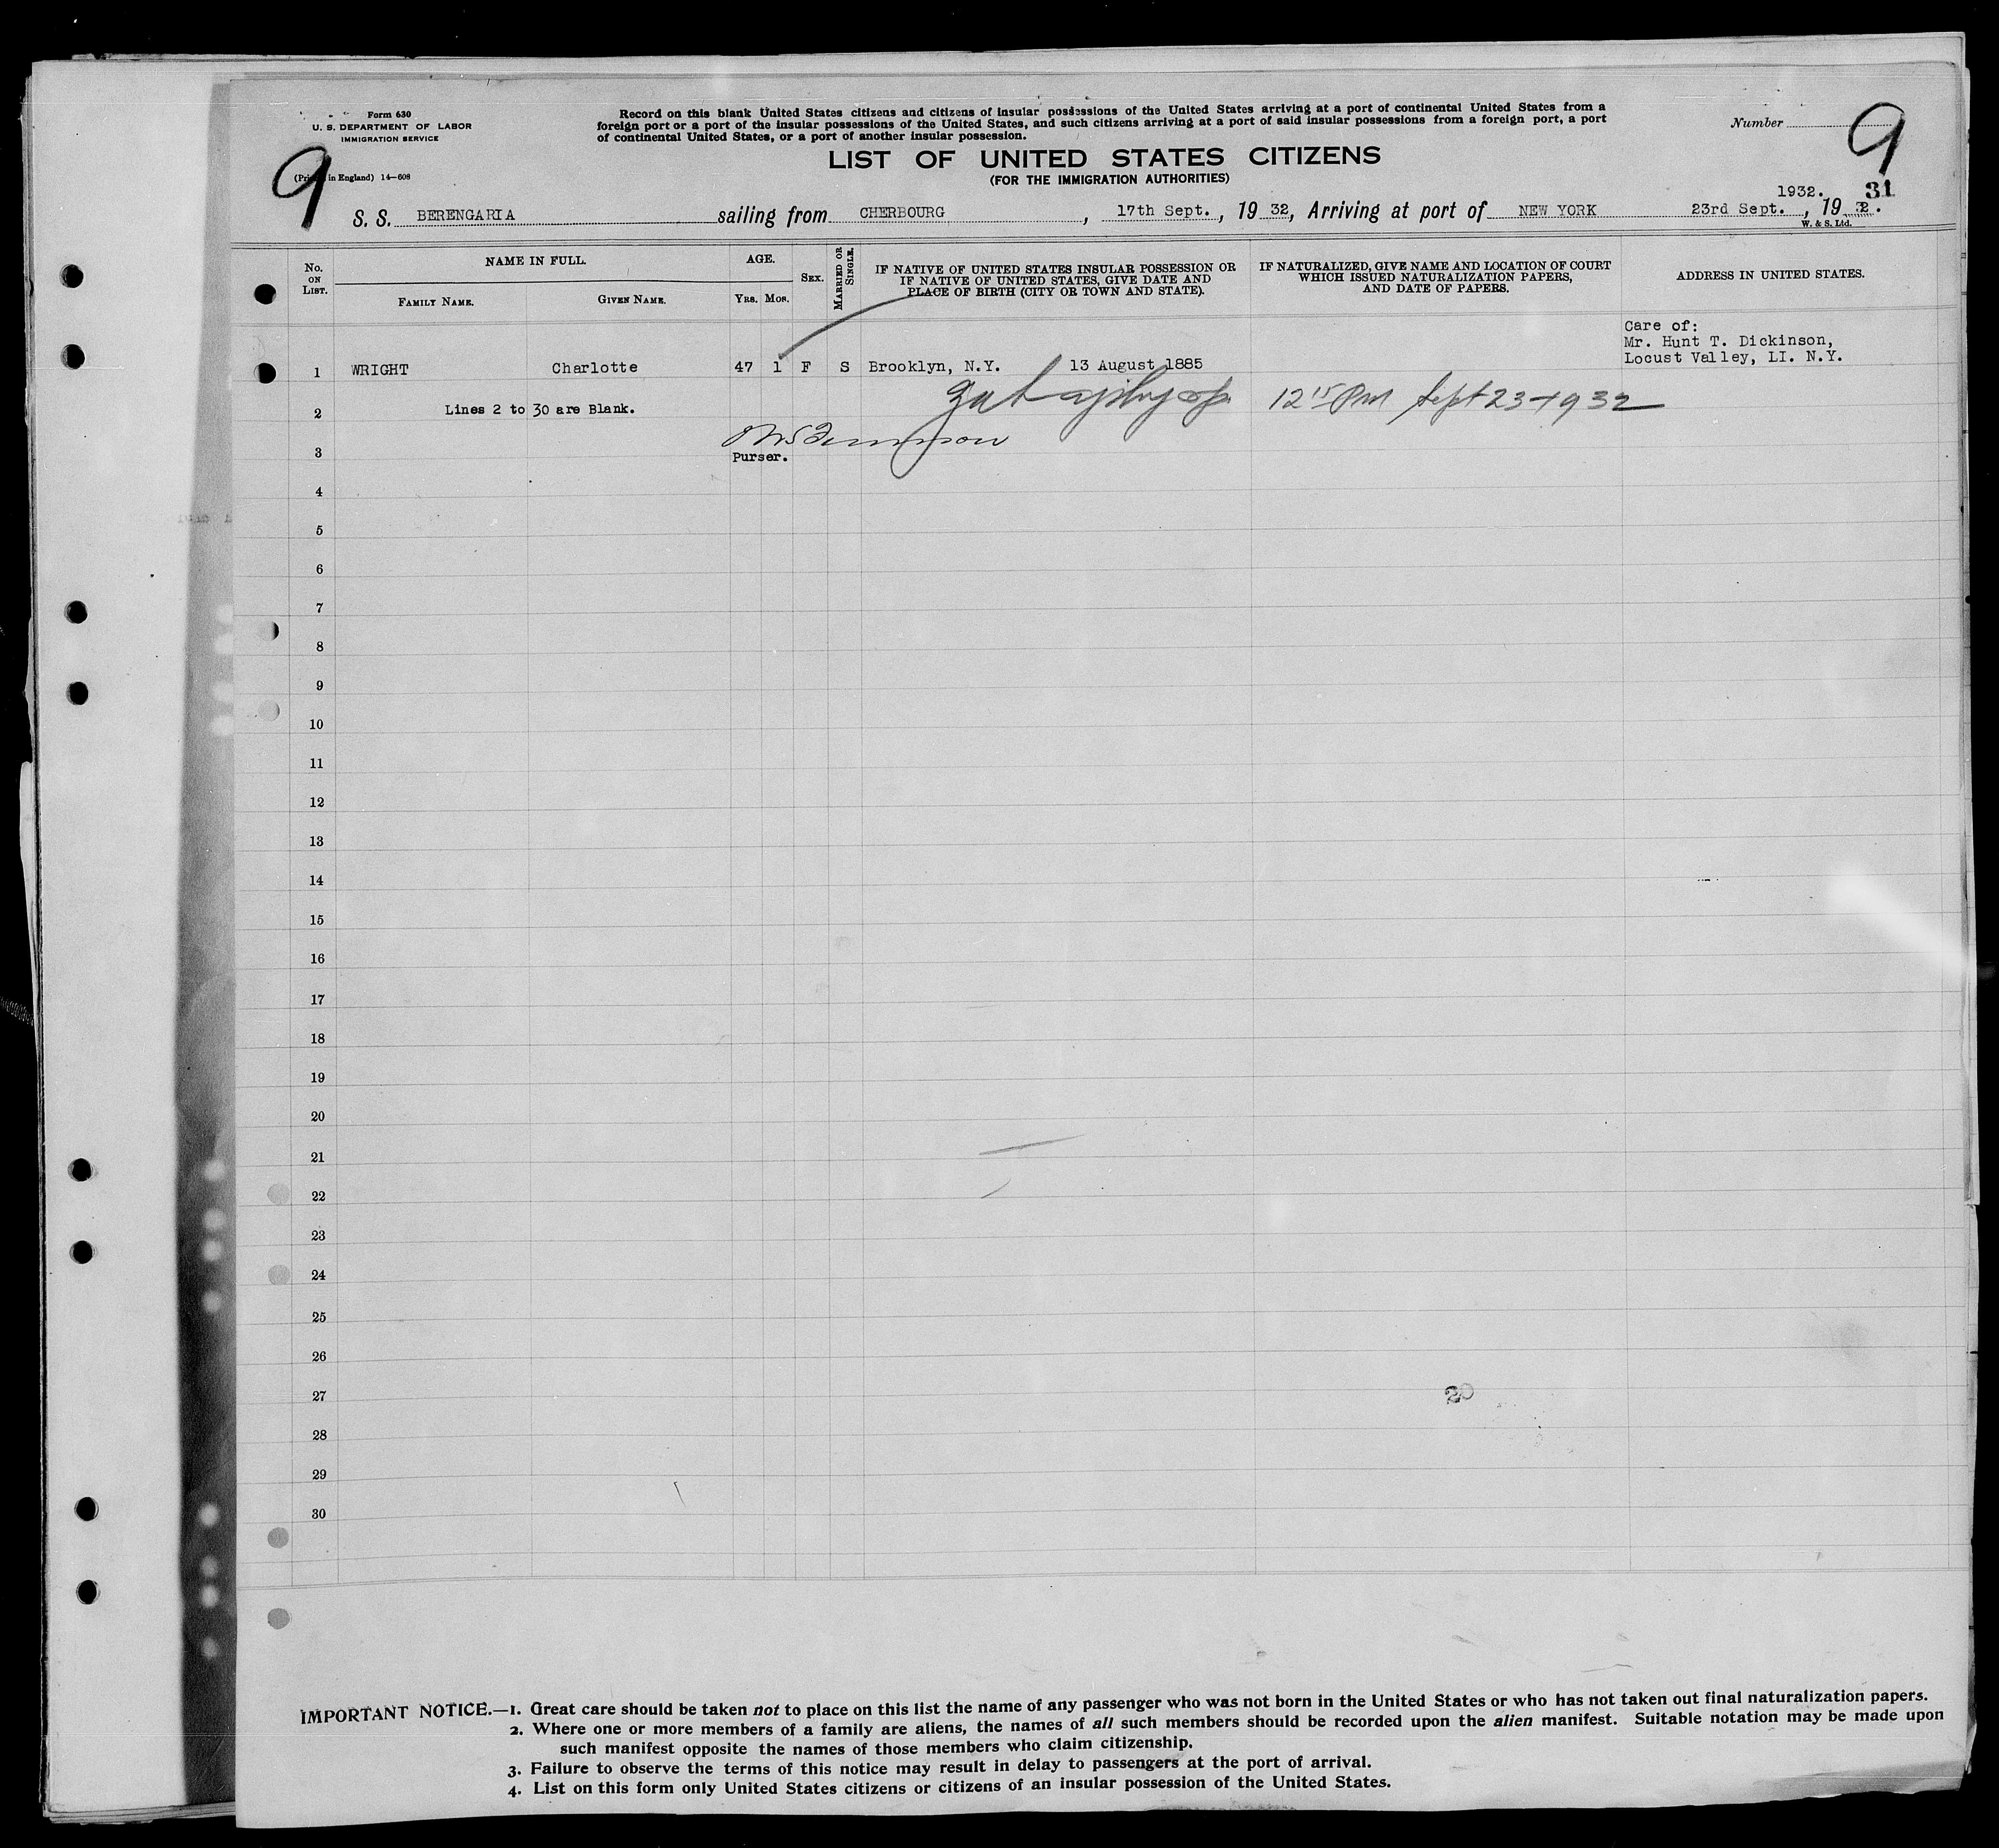 Form 630
U. S. DEPARTMENT OF LABOR
IMMIGRATION SERVICE
(Printed in England) 14—608
9
Record on this blank United States citizens and citizens of insular possessions of the United States arriving at a port of continental United States from a
foreign port or a port of the insular possessions of the United States, and such citizens arriving at a port of said insular possessions from a foreign port, a port
of continental United States, or a port of another insular possession.
Number 9
LIST OF UNITED STATES CITIZENS
(FOR THE IMMIGRATION AUTHORITIES)
1932. 31
S. S. BERENGARIA sailing from CHERBOURG, 17th Sept., 19 32, Arriving at port of NEW YORK 23rd Sept., 19 32.
W. & S. Ltd.
No. ON LIST.
NAME IN FULL.
FAMILY NAME. GIVEN NAME.
AGE.
YRS. MOS.
SEX.
MARRIED OR SINGLE.
IF NATIVE OF UNITED STATES INSULAR POSSESSION OR
IF NATIVE OF UNITED STATES, GIVE DATE AND
PLACE OF BIRTH (CITY OR TOWN AND STATE).
IF NATURALIZED, GIVE NAME AND LOCATION OF COURT
WHICH ISSUED NATURALIZATION PAPERS,
AND DATE OF PAPERS.
ADDRESS IN UNITED STATES.
Care of:
Mr. Hunt T. Dickinson,
Locust Valley, LI. N.Y.
1 WRIGHT Charlotte 47 1 F S Brooklyn, N.Y. 13 August 1885
2 Lines 2 to 30 are Blank. 12 15 Pm Sept 23-1932
3 Purser.
4
5
6
7
8
9
10
11
12
13
14
15
16
17
18
19
20
21
22
23
24
25
26
27 20
28
29
30
IMPORTANT NOTICE.—1. Great care should be taken not to place on this list the name of any passenger who was not born in the United States or who has not taken out final naturalization papers.
2. Where one or more members of a family are aliens, the names of all such members should be recorded upon the alien manifest. Suitable notation may be made upon
such manifest opposite the names of those members who claim citizenship.
3. Failure to observe the terms of this notice may result in delay to passengers at the port of arrival.
4. List on this form only United States citizens or citizens of an insular possession of the United States.